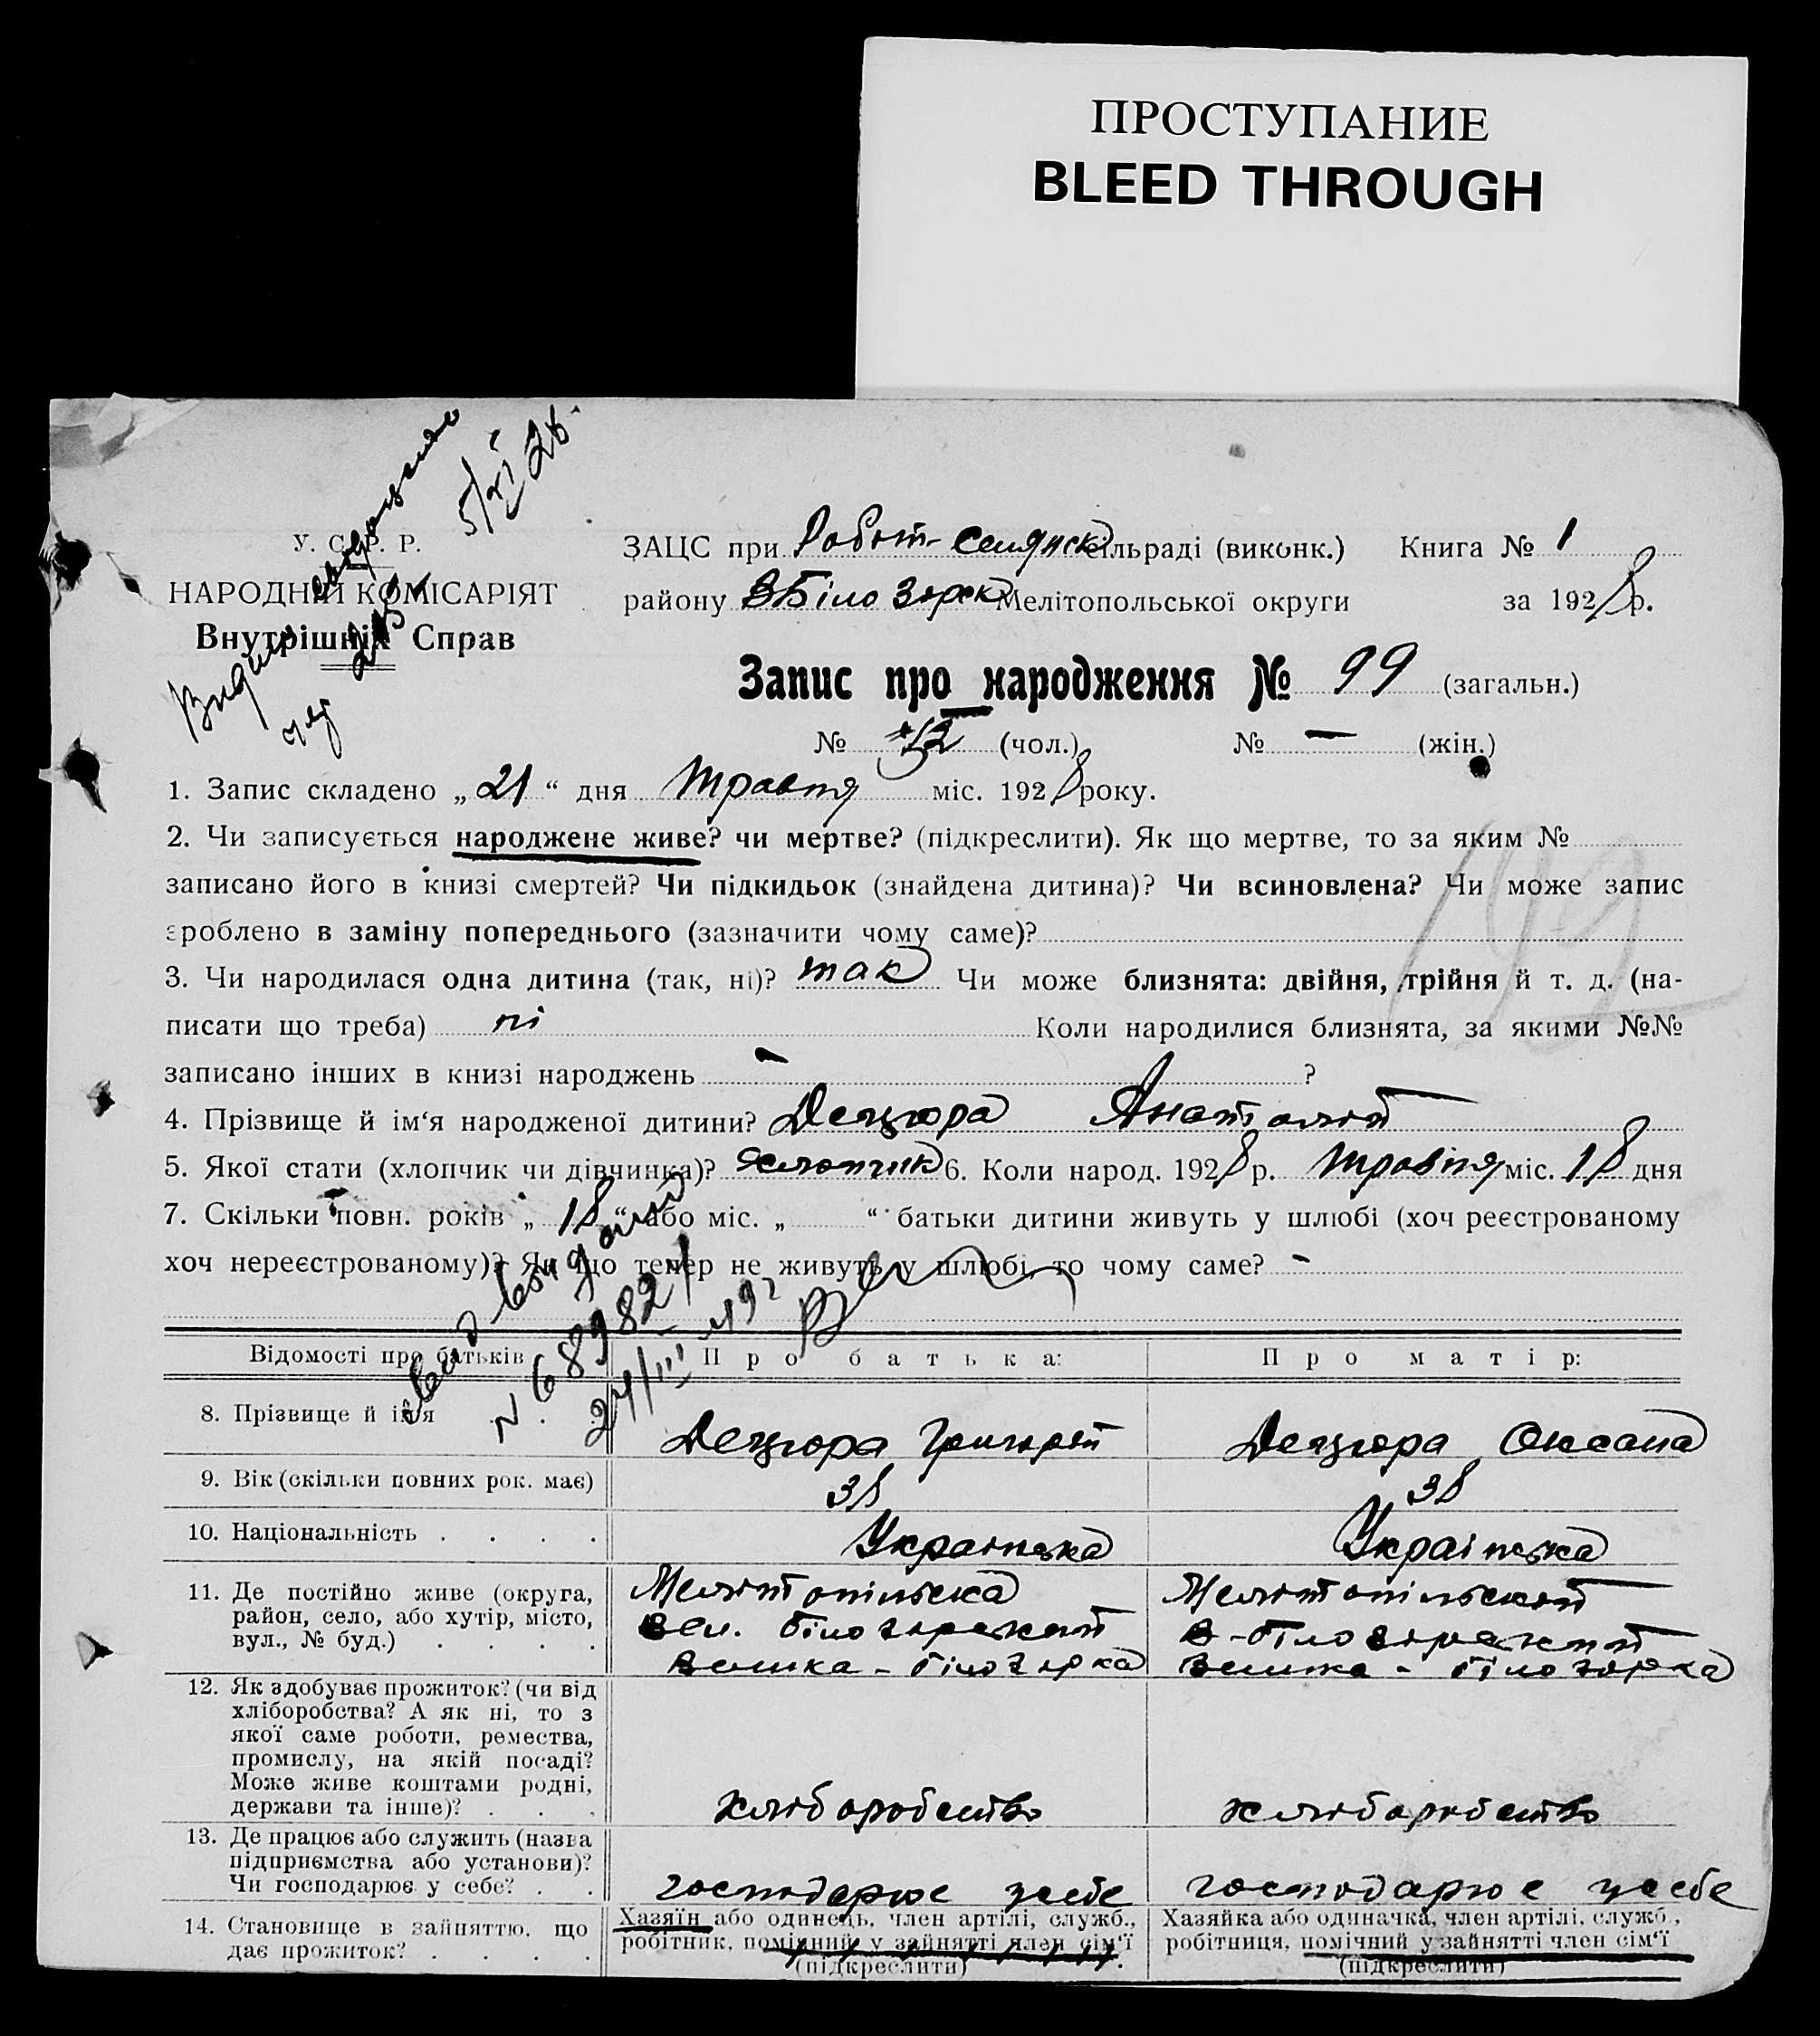 ПРОСТУПАНИЕ
BLEED THROUGH
5/VI 28.
У. С. Р. Р.
НАРОДНІЙ КОМІСАРІЯТ
Внутрішніх Справ
ЗАЦС при Робот-Селянск сільраді (виконк.) Книга № 1
району ВБілозерк Мелітопольської округи за 1928 р.
Запис про народження № 99 (загальн.)
№ 52 (чол.) № — (жін.)
1. Запис складено „21“ дня Травня міс. 1928 року.
2. Чи записується народжене живе? чи мертве? (підкреслити). Як що мертве, то за яким №
записано його в книзі смертей? Чи підкидьок (знайдена дитина)? Чи всиновлена? Чи може запис
зроблено в заміну попереднього (зазначити чому саме)?
3. Чи народилася одна дитина (так, ні)? так Чи може близнята: двійня, трійня й т. д. (на-
писати що треба) ні Коли народилися близнята, за якими №№
записано інших в книзі народжень — ?
4. Прізвище й ім‘я народженої дитини? Децюра Анатолій
5. Якої стати (хлопчик чи дівчинка)? Хлопчик 6. Коли народ. 1928 р. Травня міс. 18 дня
7. Скільки повн. років „18“ або міс. „ “ батьки дитини живуть у шлюбі (хоч реєстрованому
хоч нереєстрованому)? Як що тепер не живуть у шлюбі, то чому саме? -
N 689821
Відомості про батьків
Про батька:
Про матір:
8. Прізвище й ім‘я
Децюра Григорій
Децюра Оксана
9. Вік (скільки повних рок. має)
38
38
10. Національність . . . .
Українська
Українська
11. Де постійно живе (округа,
район, село, або хутір, місто,
вул., № буд.) . . . .
Мелітопільска
Вел. Білозерский
Велика - Білозерка
Мелітопільский
В-Білозерский
Велика - Білозерка
12. Як здобуває прожиток? (чи від
хліборобства? А як ні, то з
якої саме роботи, ремества,
промислу, на якій посаді?
Може живе коштами родні,
держави та інше)? . . .
Хліборобство
Хліборобство
13. Де працює або служить (назва
підприємства або установи)?
Чи господарює у себе? . .
господарює усебе
господарює усебе
14. Становище в зайняттю, що
дає прожиток? . . . .
Хазяїн або одинець, член артілі, служб.,
робітник, помічний у зайнятті член сім‘ї
(підкреслити)
Хазяйка або одиначка, член артілі, служб.,
робітниця, помічний у зайнятті член сім‘ї
(підкреслити)